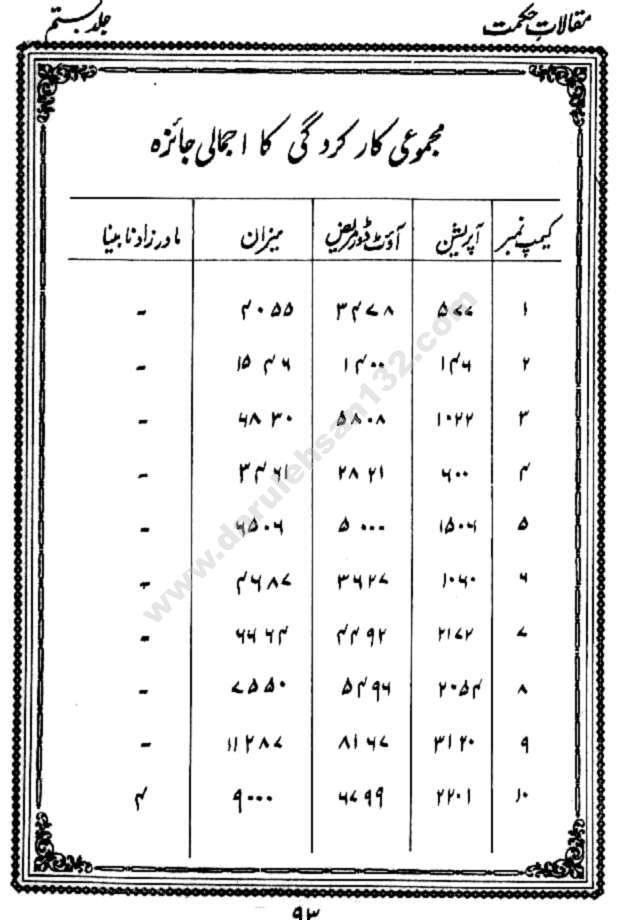 مقالاتِ حکمت جلد بستم
مجموعی کارکردگی کا اجمالی جائزہ
کیمپ نمبر آپریشن آؤٹ ڈور مریض میزان مادر زاد نابینا
۱ ۵۷۷ ۳۴۷۸ ۴۰۵۵ -
۲ ۱۴۶ ۱۴۰۰ ۱۵۴۶ -
۳ ۱۰۲۲ ۵۸۰۸ ۶۸۳۰ -
۴ ۶۰۰ ۲۸۲۱ ۳۴۶۱ -
۵ ۱۵۰۶ ۵۰۰۰ ۶۵۰۶ -
۶ ۱۰۶۰ ۳۶۲۷ ۴۶۸۷ -
۷ ۲۱۷۲ ۴۴۹۲ ۶۶۶۴ -
۸ ۲۰۵۴ ۵۴۹۶ ۷۵۵۰ -
۹ ۳۱۲۰ ۸۱۶۷ ۱۱۲۸۷ -
۱۰ ۲۲۰۱ ۶۷۹۹ ۹۰۰۰ ۴
www.darulehsan132.com
۹۳